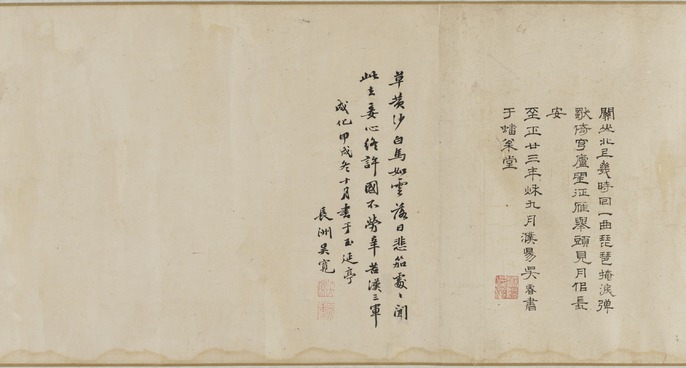 關山北上幾時回一曲琵琶掩淚彈
歇倚穹廬望征雁舉頭見月佀長
安
至正廿三年秌九月濮昜吳睿書
于蟠堂
草黃沙白馬如雲落日悲笳處〻聞
此去妾心終許國不勞辛苦漢三軍
成化甲戌冬十月書于玉延亭
長洲吳寬